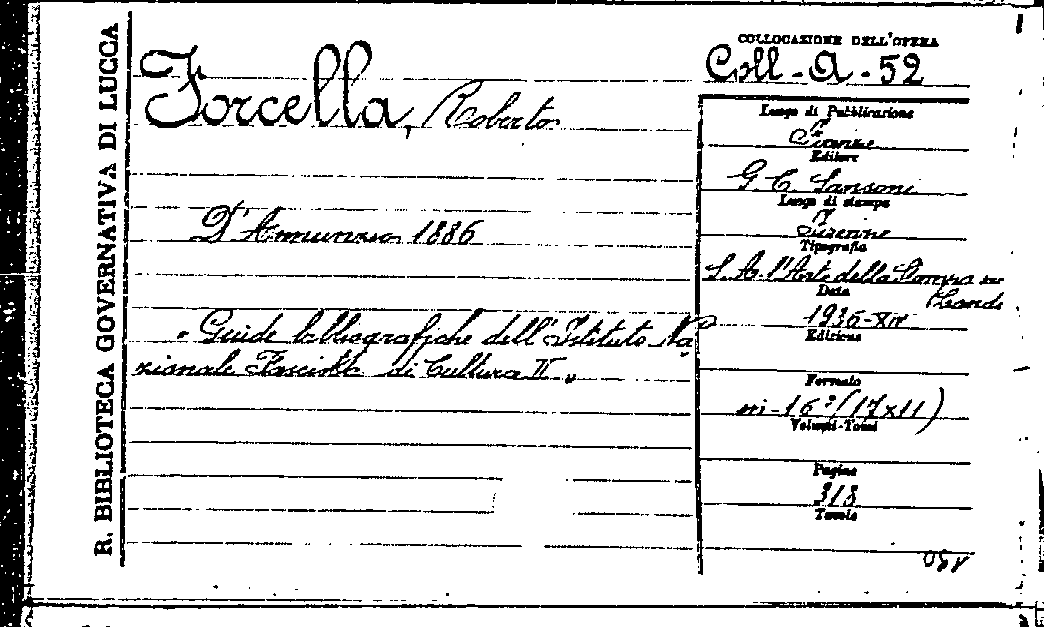 R. BIBLIOTECA GOVERNATIVA DI LUCCA
Forcella, Roberto
D'Annunzio 1886
"Guide bibliografiche dell'Istituto Na
zionale Fascista di Cultura II"
COLLOCAZIONE DELL'OPERA
Coll-A-52
Luogo di Pubblicazione
Firenze
Editore
G. C. Sansoni
Luogo di stampa
Firenze
Tipografia
S. A. l'Arte della Stampa
Data
1936-XIV
Edizione
Formato
in-16º (17x11)
Volumi-Tomi
Pagine
318
Tavole